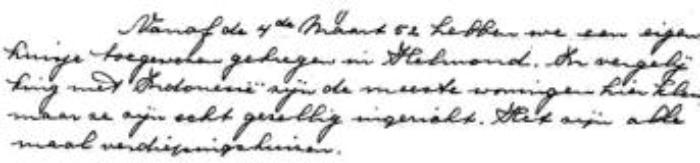 Vanaf de 4de Maart 52 hebben we een eigen
huisje toegewezen gekregen in Helmond. In vergelij
king met Indonesië zijn de meeste woningen hier klein
maar ze zijn echt gezellig ingericht. Het zijn alle
maal verdiepingshuizen.